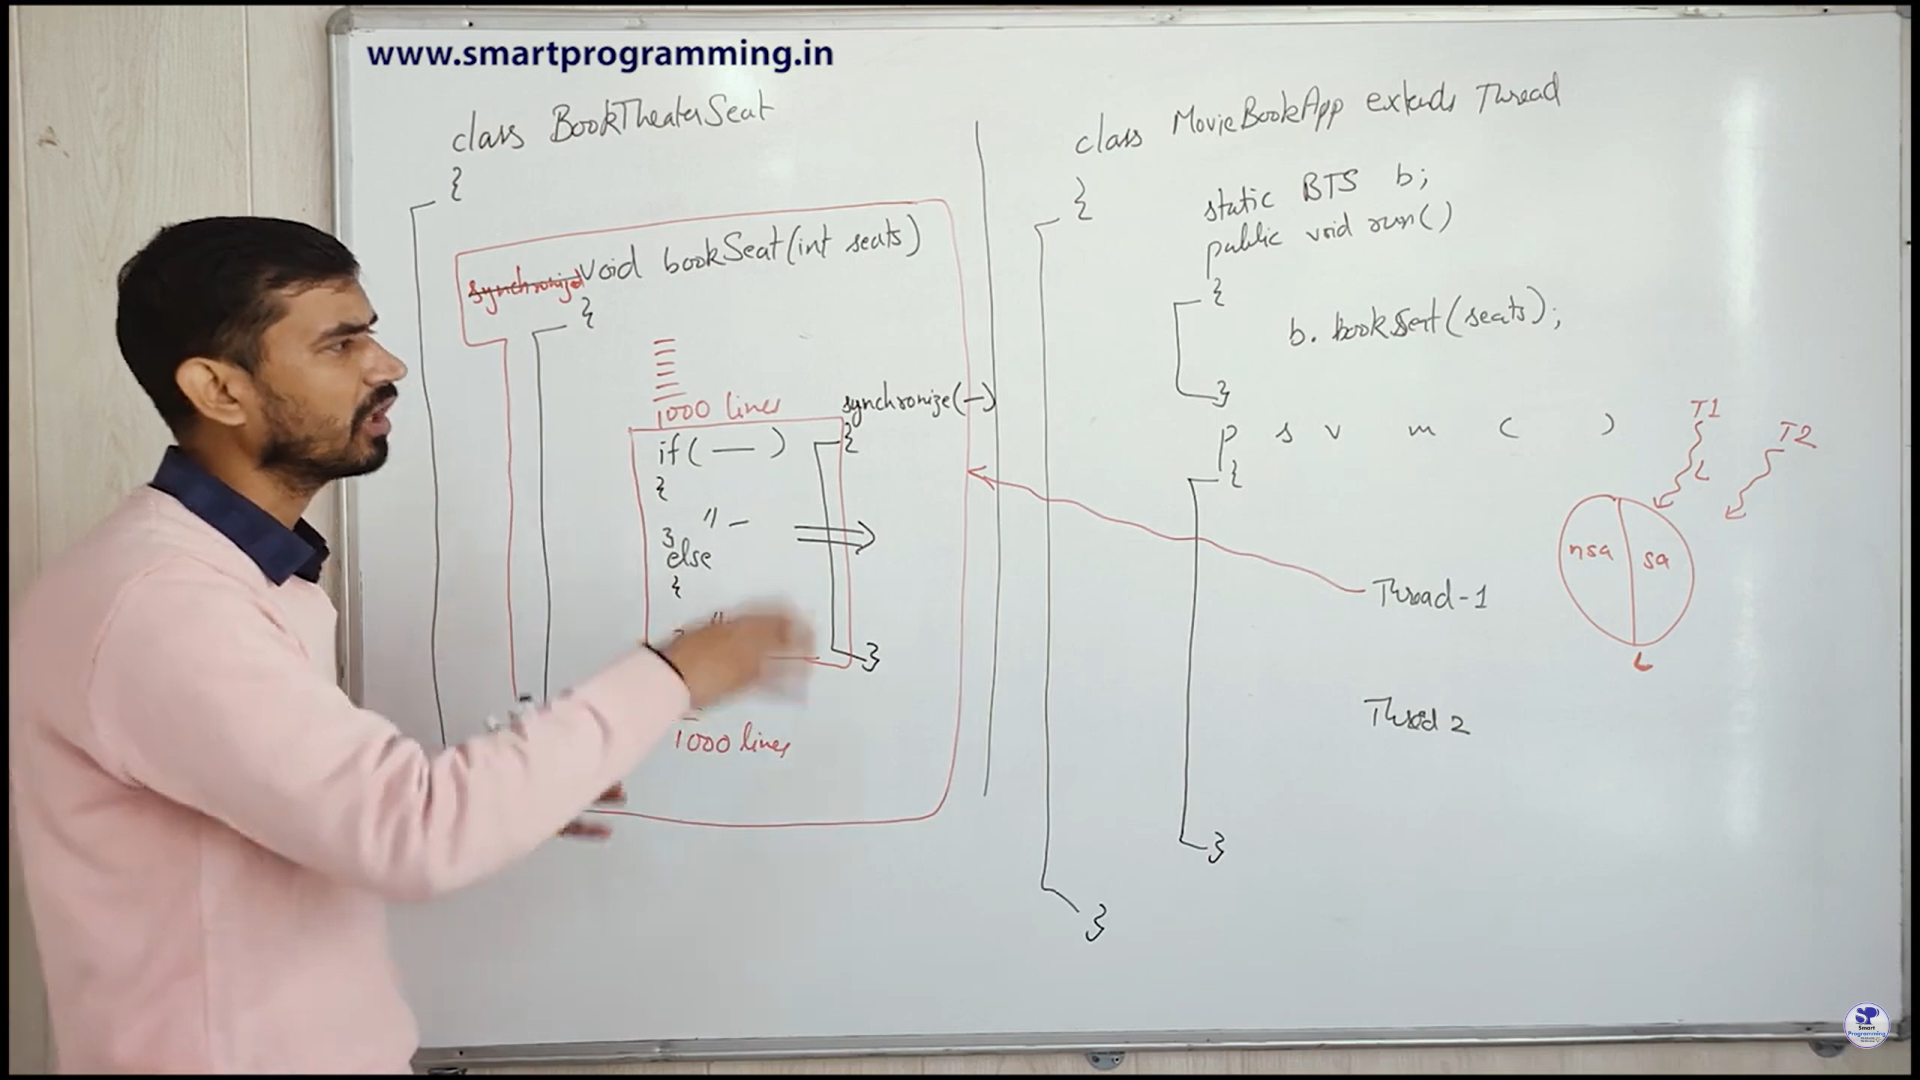 www.smartprogramming.in
class BookTheaterSeat
{
synchronized void bookSeat(int seats)
{
1000 lines
synchronize(—)
{
if( — )
{
" —
}
else
{
"
}
}
1000 lines
class MovieBookApp extends Thread
{
static BTS b;
public void run()
{
b. bookSeat(seats);
}
p s v m ( )
{
Thread-1
Thread 2
}
}
T1
T2
L
nsa
sa
L
SP
Smart
Programming